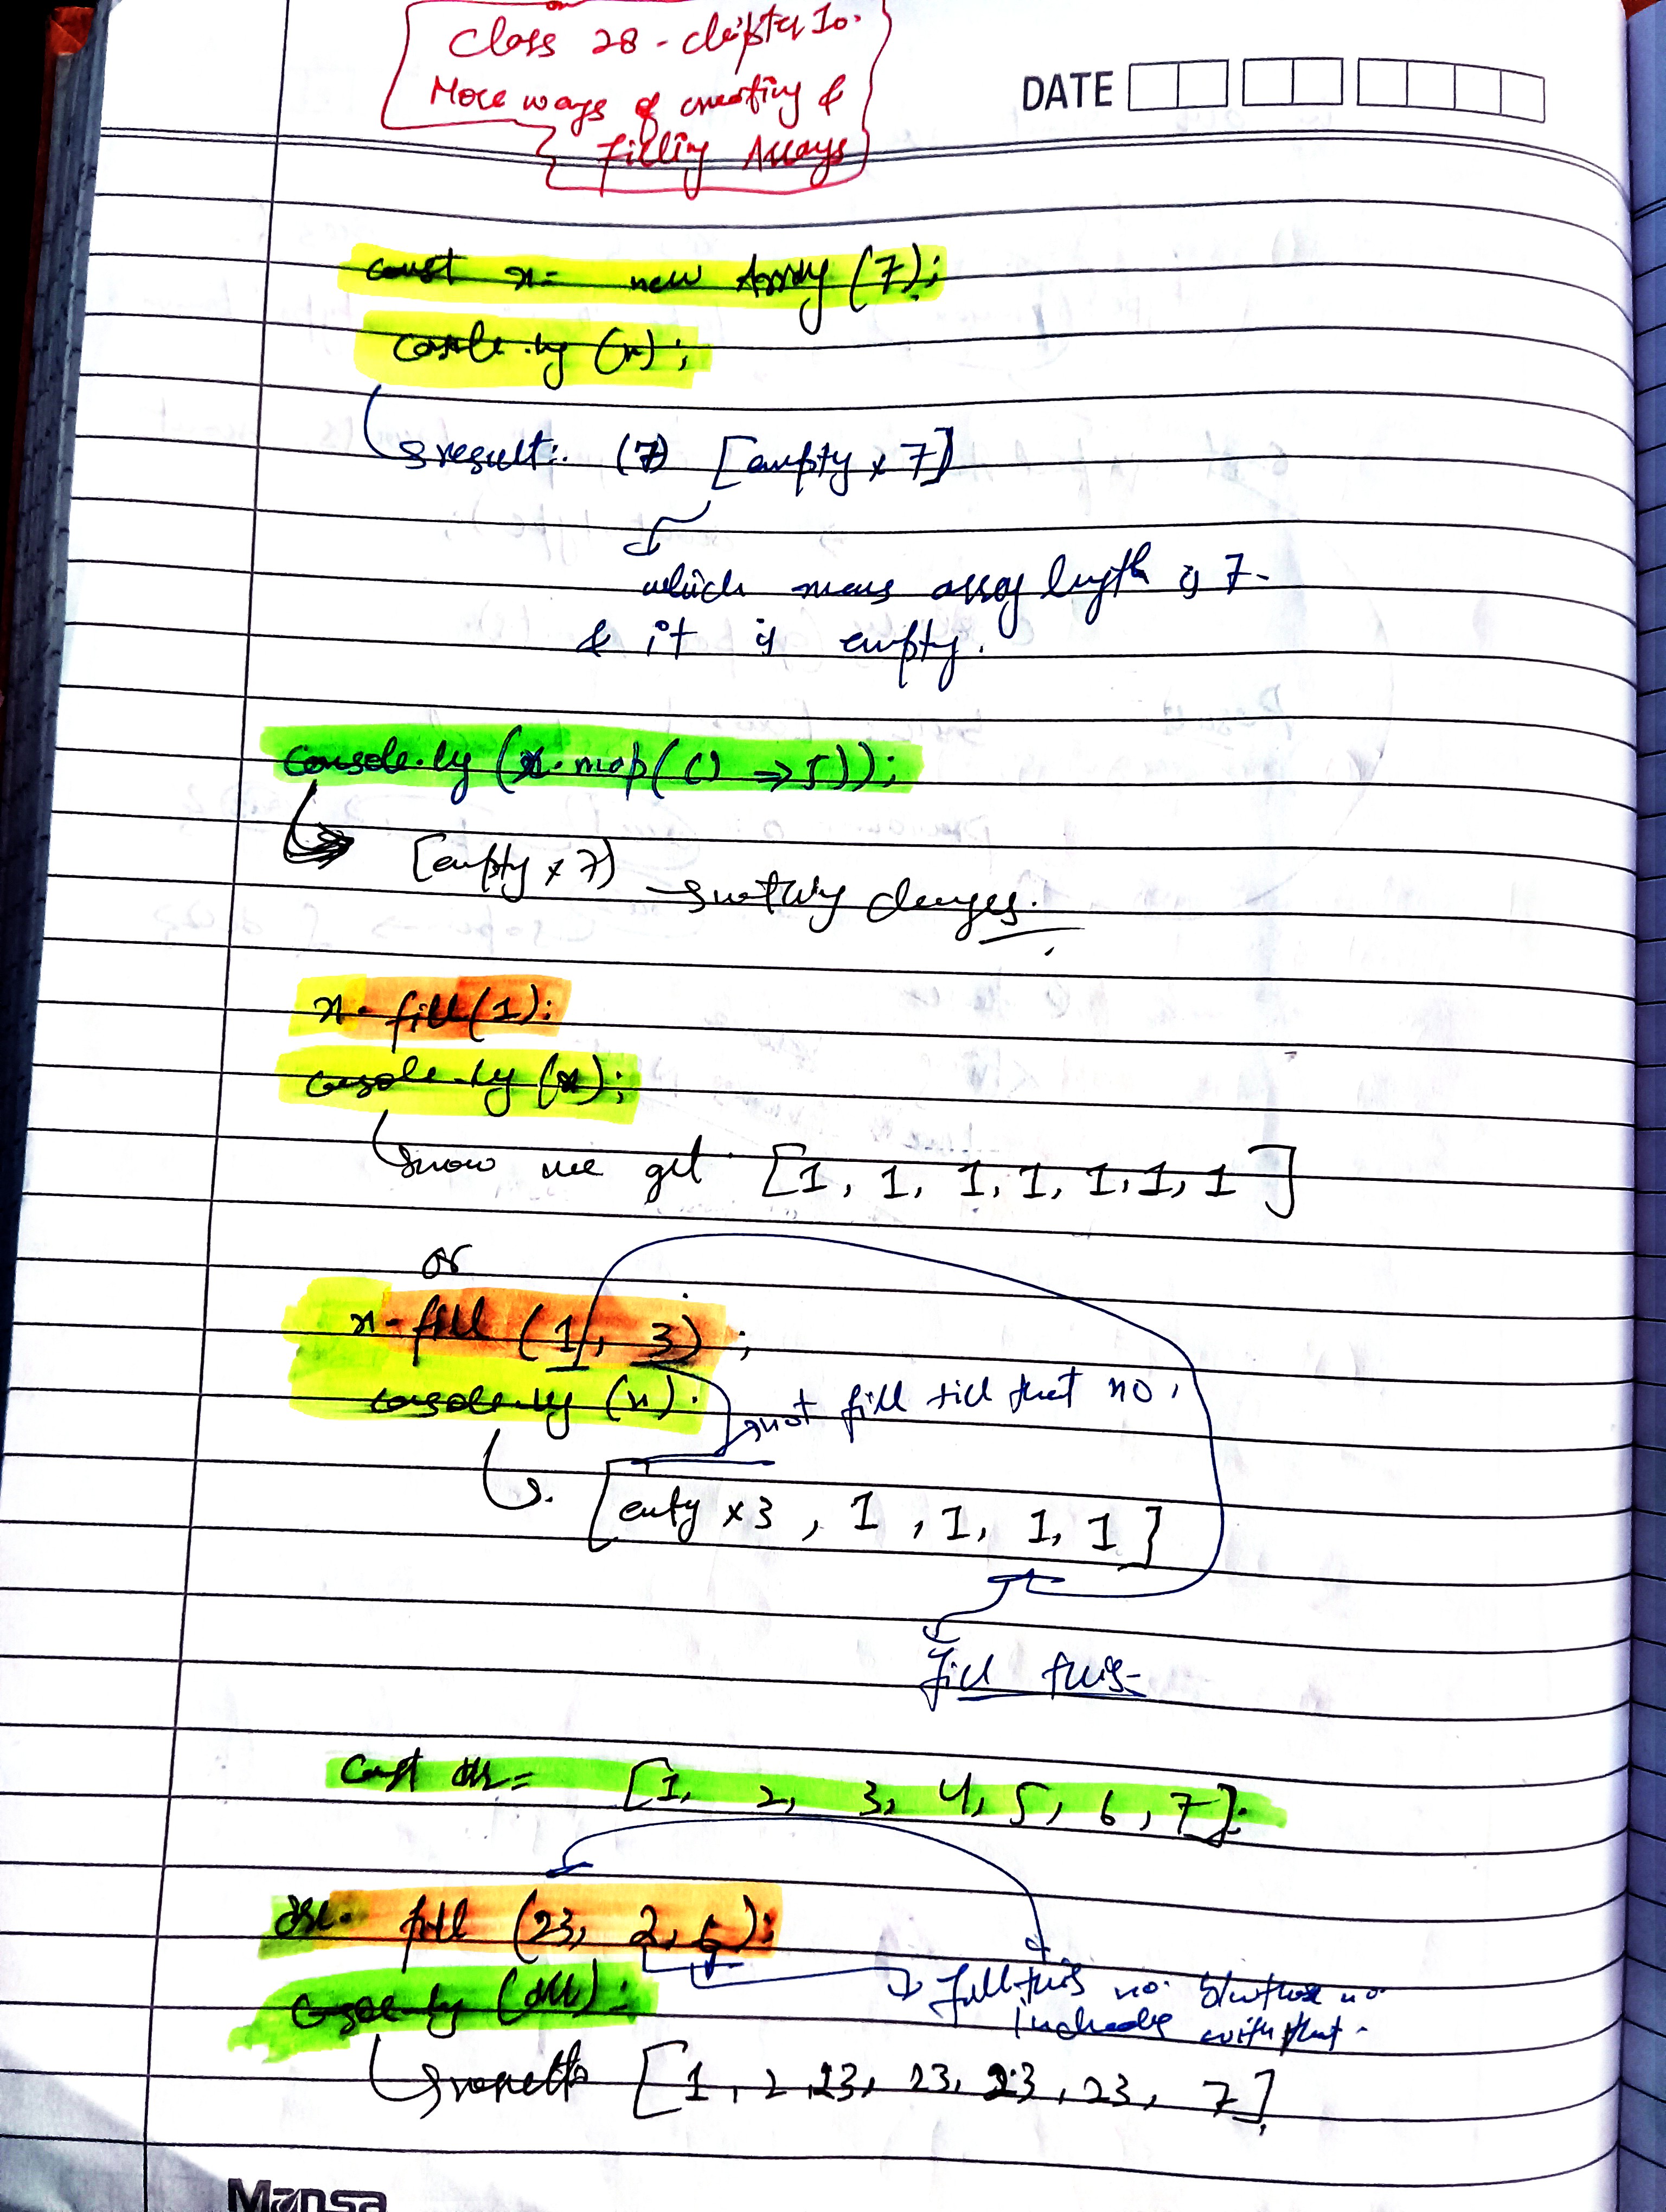 Class 28 - chapter 10.
More ways of creating &
filling Arrays
DATE
const x = new Array (7);
console.log (x);
result:. (7) [empty x 7]
which means array length is 7.
& it is empty.
console.log (x.map(() => 5));
[empty x 7) nothing changes.
x. fill(1);
console.log (x);
now we get [1, 1, 1, 1, 1, 1, 1]
or
x. fill (1, 3);
console.log (x).
not fill till that no.
[emty x 3, 1, 1, 1, 1]
fill this
const arr = [1, 2, 3, 4, 5, 6, 7];
arr. fill (23, 2, 6);
fill this no. b/w these no.
console.log (arr);
including with that.
[1, 2, 23, 23, 23, 23, 7]
Mansa